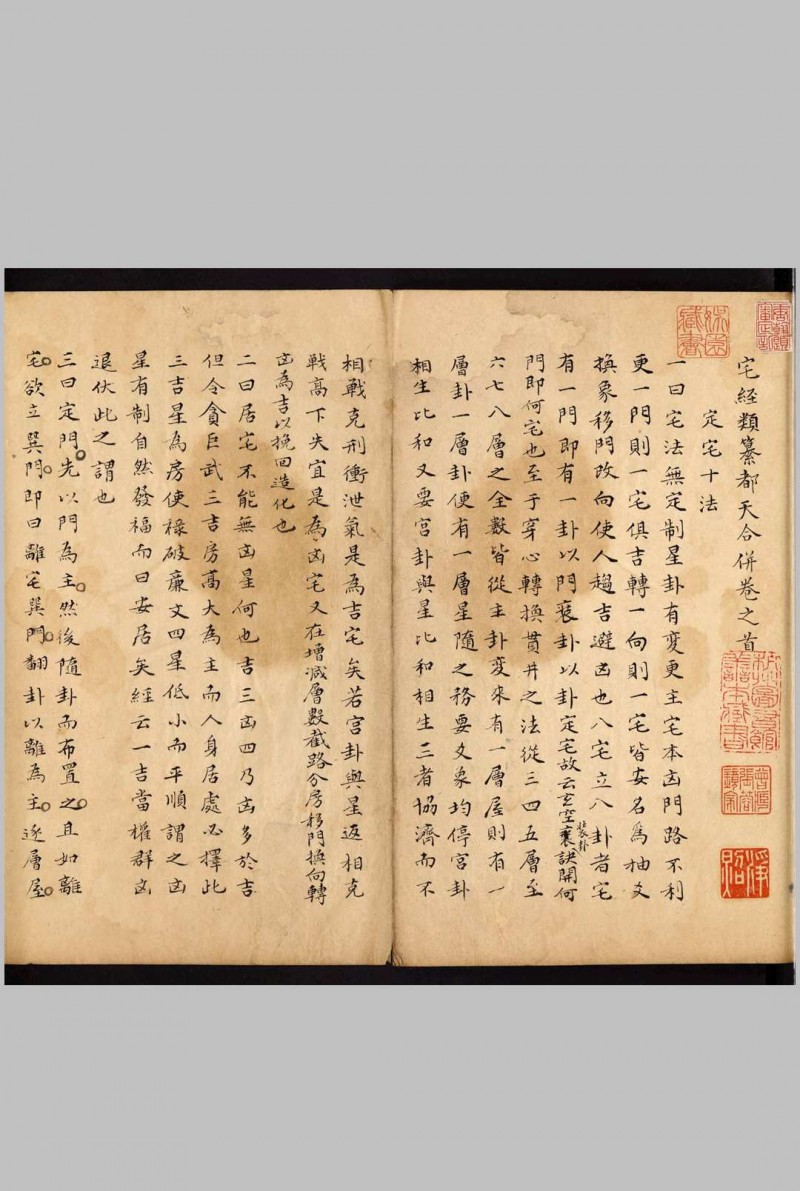 宅經類纂都天合併卷之首
定宅十法
一曰宅法無定制星卦有變更主宅本凶門路不利
更一門則一宅俱吉轉一向則一宅皆安名爲抽爻
換象移門改向使人趨吉避凶也八宅立八卦者宅
有一門即有一卦以門裝卦以卦定宅故云玄空裝卦訣開何
門即何宅也至于穿心轉換貫井之法從三四五層至
六七八層之全數皆從主卦變來有一層屋則有一
層卦一層卦便有一層星隨之務要爻象均停宮卦
相生比和又要宮卦與星比和相生三者協濟而不
相戰克刑衝泄氣是為吉宅矣若宮卦與星返相克
戰高下失宜是為凶宅又在增減層數截路分房移門換向轉
凶為吉以挽回造化也
二曰居宅不能無凶星何也吉三凶四乃凶多於吉
但令貪巨武三吉房高大為主而人身居處必擇此
三吉星為房使祿破廉文四星低小而平順謂之凶
星有制自然發福而曰安居矣經云一吉當權群凶
退伏此之謂也
三曰定門先以門為主然後隨卦而布置之且如離
宅欲立巽門即曰離宅巽門翻卦以離為主逐層屋